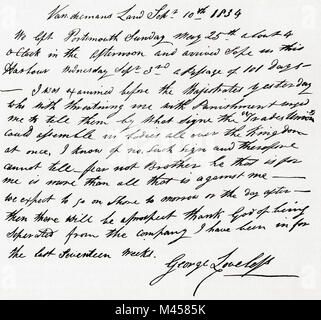 Vandiemans Land Sepr 10th 1834
We left Portsmouth Sunday May 25th about 4
o Clock in the afternoon and arrived safe in this
Harbour Wednesday Sept 3rd a passage of 101 days—
I was examined before the Majestrates yesterday
who with threatning me with Punishment urged
me to tell them by what signe the "Trades Unions"
could assemble in bodies all over the Kingdom
at once, I know of no such sign and therefore
cannot tell—fear not Brother he that is for
me is more than all that is against me—
we expect to go on shore to morrow or the day after—
then there will be a prospect thank God of being
seperated from the company I have been in for
the last seventeen weeks.
George Loveless
alamy
M4585K